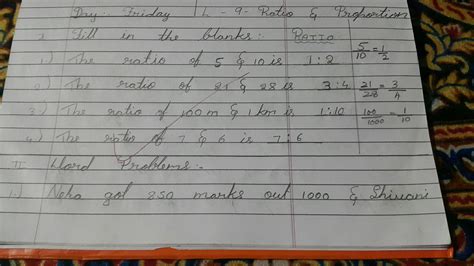 Day: Friday L - 9 - Ratio & Proportion
I. Fill in the blanks:- RATIO
1.) The ratio of 5 & 10 is 1:2 5/10 = 1/2
2.) The ratio of 21 & 28 is 3:4 21/28 = 3/4
3.) The ratio of 100 m & 1 km is 1:10 100/1000 = 1/10
4.) The ratio of 7 & 6 is 7:6
II Word Problems:-
1.) Neha got 850 marks out 1000 & Shivani